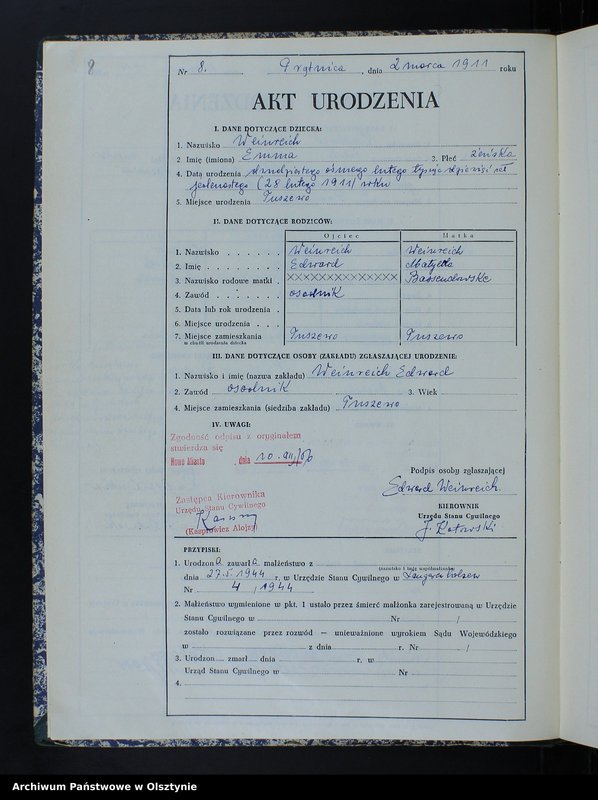 8
Nr 8. Prątnica, dnia 2 marca 1911 roku
AKT URODZENIA
I. DANE DOTYCZĄCE DZIECKA:
1. Nazwisko Weinreich
2 Imię (imiona) Emma 3. Płeć żeńska
4. Data urodzenia dwudziestego ósmego lutego tysiąc dziewięćset
jedenastego (28 lutego 1911) roku
5. Miejsce urodzenia Tuszewo
II. DANE DOTYCZĄCE RODZICÓW:
Ojciec Matka
1. Nazwisko Weinreich Weinreich
2. Imię Edward Matylda
3. Nazwisko rodowe matki XXXXXXXXXXXXX
4. Zawód osadnik
5. Data lub rok urodzenia
6. Miejsce urodzenia
7. Miejsce zamieszkania Tuszewo Tuszewo
w chwili urodzenia dziecka
III. DANE DOTYCZĄCE OSOBY (ZAKŁADU) ZGŁASZAJĄCEJ URODZENIE:
1. Nazwisko i imię (nazwa zakładu) Weinreich Edward
2. Zawód osadnik 3. Wiek
4. Miejsce zamieszkania (siedziba zakładu) Tuszewo
IV. UWAGI:
Zgodność odpisu z oryginałem
stwierdza się
Nowe Miasto, dnia 10.
Podpis osoby zgłaszającej
Edward Weinreich.
Zastępca Kierownika
Urzędu Stanu Cywilnego
(Kasprowicz Alojzy)
KIEROWNIK
Urzędu Stanu Cywilnego
PRZYPISKI:
1. Urodzona zawarła małżeństwo z
(nazwisko i imię współmałżonka)
dnia 27.5.1944 r. w Urzędzie Stanu Cywilnego w
Nr 4/1944
2. Małżeństwo wymienione w pkt. 1 ustało przez śmierć małżonka zarejestrowaną w Urzędzie
Stanu Cywilnego w Nr /
zostało rozwiązane przez rozwód — unieważnione wyrokiem Sądu Wojewódzkiego
w z dnia r. Nr /
3. Urodzon zmarł dnia r. w
Urząd Stanu Cywilnego w Nr
4.
Archiwum Państwowe w Olsztynie